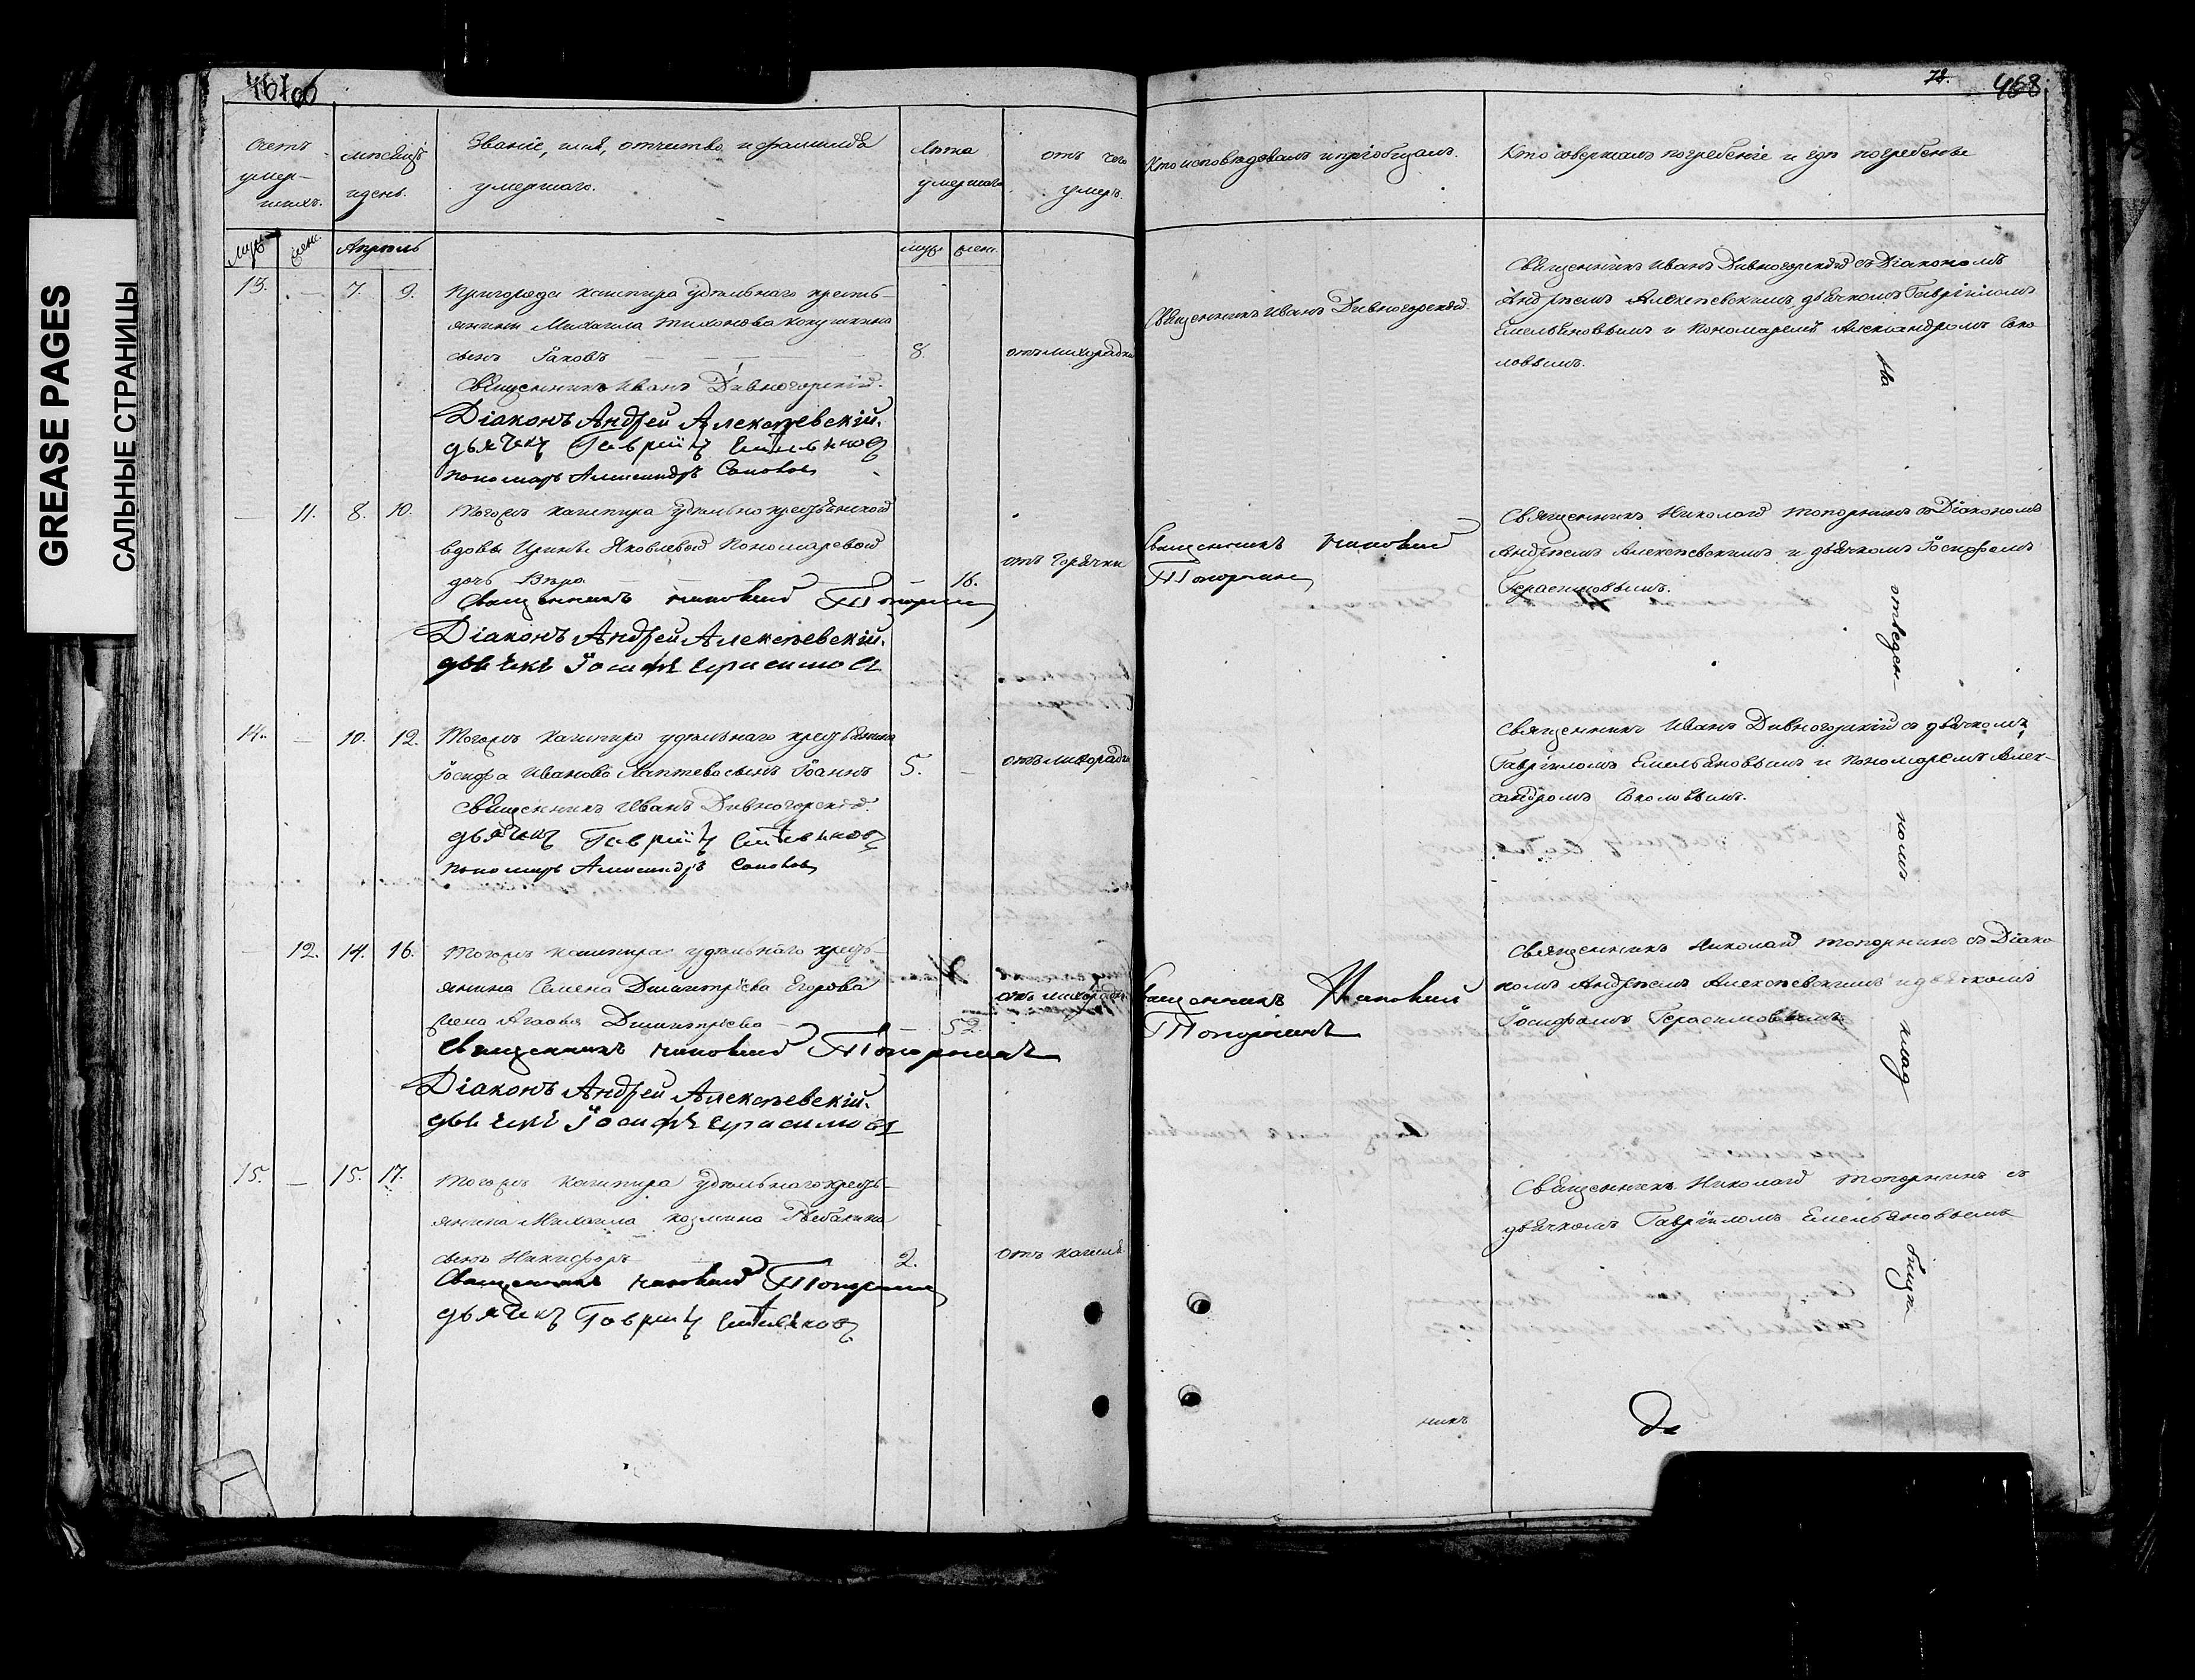 GREASE PAGES
САЛЬНЫЕ СТРАНИЦЫ
467об
Счетъ умер-
шихъ.
мѣсяцъ
и день.
Званіе, имя, отчество и фамилія
умершаго.
Лѣта
умершаго
отъ чего
умеръ.
муж.
жен.
Апрѣль
муж.
жен.
13. — 7. 9.
Пригорода Кашпира удѣльнаго кресть-
янина Михаила Тихонова
сынъ Іаковъ
8.
отъ лихорадки
Священникъ Иванъ Дивногорскій.
Діаконъ Андрей Алексѣевскій.
дьячекъ Гавріилъ Емельяновъ
пономарь Александръ Соколовъ
— 11. 8. 10.
Тогожъ Кашпира удѣльно крестьянской
вдовы Ирины Яковлевой Пономаревой
дочь Вѣра
— 16.
отъ горячки
Священникъ Николай Топорнинъ
Діаконъ Андрей Алексѣевскій.
дьячекъ Іосифъ Герасимовъ
14. — 10. 12.
Тогожъ Кашпира удѣльнаго крестьянина
Іосифа Иванова Лаптева сынъ Іоаннъ
5. —
отъ лихорадки
Священникъ Иванъ Дивногорскій.
дьячекъ Гавріилъ Емельяновъ
пономарь Александръ Соколовъ
— 12. 14. 16.
Тогожъ Кашпира удѣльнаго кресть-
янина Семена Димитріева Егорова
жена Агафья Димитріева
— 52
отъ лихорадки
Священникъ Николай Топорнинъ
Діаконъ Андрей Алексѣевскій.
дьячекъ Іосифъ Герасимовъ
15. — 15. 17.
Тогожъ Кашпира удѣльнаго кресть-
янина Михаила Козмина Рыбакина
сынъ Никифоръ
2.
отъ кашля
Священникъ Николай Топорнинъ
дьячекъ Гавріилъ Емельяновъ
78.
468
Кто исповѣдовалъ и пріобщалъ.
Кто совершалъ погребеніе и гдѣ погребены
Священникъ Иванъ Дивногорскій
Священникъ Иванъ Дивногорскій съ Діакономъ
Андреемъ Алексѣевскимъ, дьячкомъ Гавріиломъ
Емельяновымъ и Пономаремъ Александромъ Соко
ловымъ.
Священникъ Николай
Топорнинъ
Священникъ Николай Топорнинъ съ Діакономъ
Андреемъ Алексѣевскимъ и дьячкомъ Іосифомъ
Герасимовымъ.
Священникъ Иванъ Дивногорскій съ дьячкомъ
Гавріиломъ Емельяновымъ и Пономаремъ Алек-
сандромъ Соколовымъ.
Священникъ Николай
Топорнинъ
Священникъ Николай Топорнинъ съ Діако
номъ Андреемъ Алексѣевскимъ и дьячкомъ
Іосифомъ Герасимовымъ
Священникъ Николай Топорнинъ съ
дьячкомъ Гавріиломъ Емельяновымъ
На
отведен-
номъ
клад
бищѣ
никъ